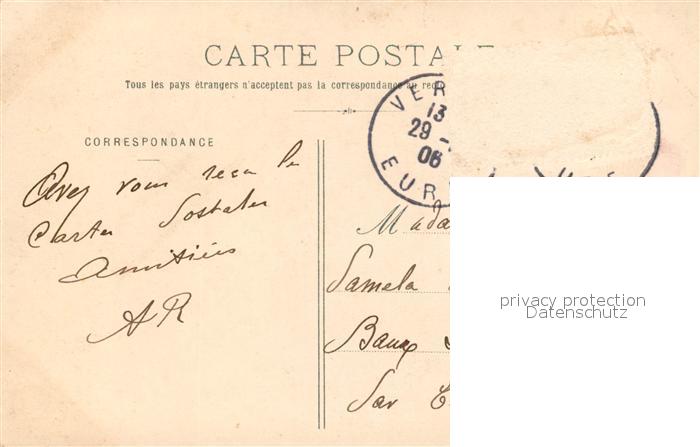 CARTE POSTALE
Tous les pays étrangers n'acceptent pas la correspondance au recto
CORRESPONDANCE
VER
13
29 -
06
EUR
Avez vous reçu les
Cartes Postales
Amitiés
AR
Mada
Pamela
Baux
Par
privacy protection
Datenschutz